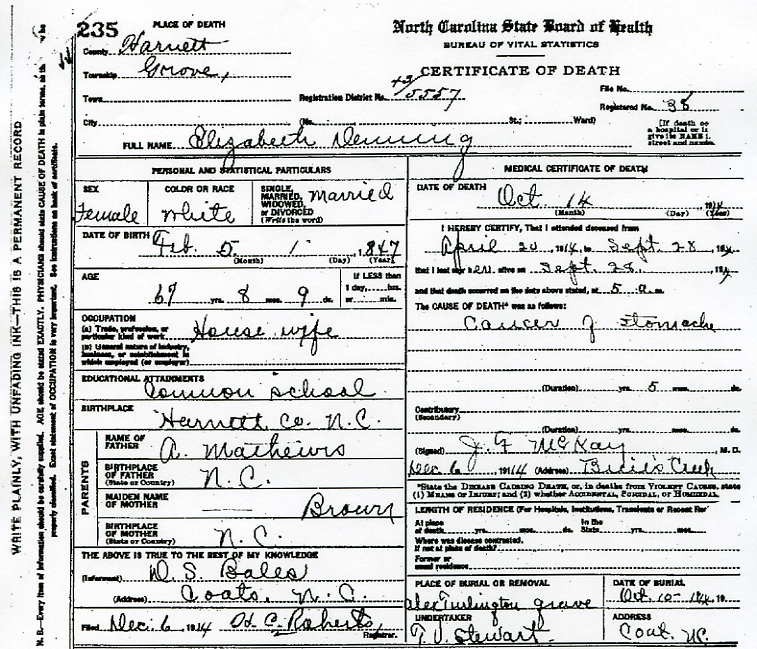 235
PLACE OF DEATH
North Carolina State Board of Health
BUREAU OF VITAL STATISTICS
County Harnett
Township Grove,
CERTIFICATE OF DEATH
Town
Registration District No. 43/5557
File No.
Registered No. 38
City (No. St.; Ward)
[If death oc
a hospital or i
give its NAME i
street and numbe
FULL NAME Elizabeth Denning
PERSONAL AND STATISTICAL PARTICULARS
SEX
Female
COLOR OR RACE
White
SINGLE,
MARRIED,
WIDOWED,
or DIVORCED
(Write the word)
Married
DATE OF BIRTH Feb. 5 1, 1847
(Month) (Day) (Year)
AGE
67 yrs. 8 mos. 9 ds.
If LESS than
1 day,....hrs.
or.....min.
OCCUPATION
(a) Trade, profession, or
particular kind of work House wife
(b) General nature of industry,
business, or establishment in
which employed (or employer)
EDUCATIONAL ATTAINMENTS
Common school
BIRTHPLACE
Harnett Co. N.C.
PARENTS
NAME OF
FATHER
A. Mathews
BIRTHPLACE
OF FATHER
(State or Country)
N.C.
MAIDEN NAME
OF MOTHER
Brown
BIRTHPLACE
OF MOTHER
(State or Country)
N.C.
THE ABOVE IS TRUE TO THE BEST OF MY KNOWLEDGE
(Informant) D. S. Bales
(Address) Coats, N.C.
Filed Dec. 6 1914 C. Roberts,
Registrar.
MEDICAL CERTIFICATE OF DEATH
DATE OF DEATH
Oct 14, 1914
(Month) (Day) (Year)
I HEREBY CERTIFY, That I attended deceased from
April 20, 1914, to Sept. 28, 191
that I last saw her alive on Sept. 28, 191
and that death occurred on the date above stated, at 5 a.m.
The CAUSE OF DEATH* was as follows:
Cancer of Stomache
(Duration) yrs. 5 mos. ds.
Contributory
(Secondary)
(Duration) yrs. mos. ds.
(Signed) J. F. McKay, M. D.
Dec. 6, 1914 (Address) Buie's Creek
*State the DISEASE CAUSING DEATH, or, in deaths from VIOLENT CAUSES, state
(1) MEANS OF INJURY; and (2) whether ACCIDENTAL, SUICIDAL, or HOMICIDAL.
LENGTH OF RESIDENCE (For Hospitals, Institutions, Transients or Recent Res'
At place
of death yrs. mos. ds. In the
State yrs. mos. ds.
Where was disease contracted,
If not at place of death?
Former or
usual residence
PLACE OF BURIAL OR REMOVAL
Alex Turlington grave
DATE OF BURIAL
UNDERTAKER
Stewart
ADDRESS
Coat, NC
WRITE PLAINLY, WITH UNFADING INK—THIS IS A PERMANENT RECORD
N. B.—Every item of information should be carefully supplied. AGE should be stated EXACTLY. PHYSICIANS should state CAUSE OF DEATH in plain terms, so th
properly classified. Exact statement of OCCUPATION is very important. See instructions on back of certificate.